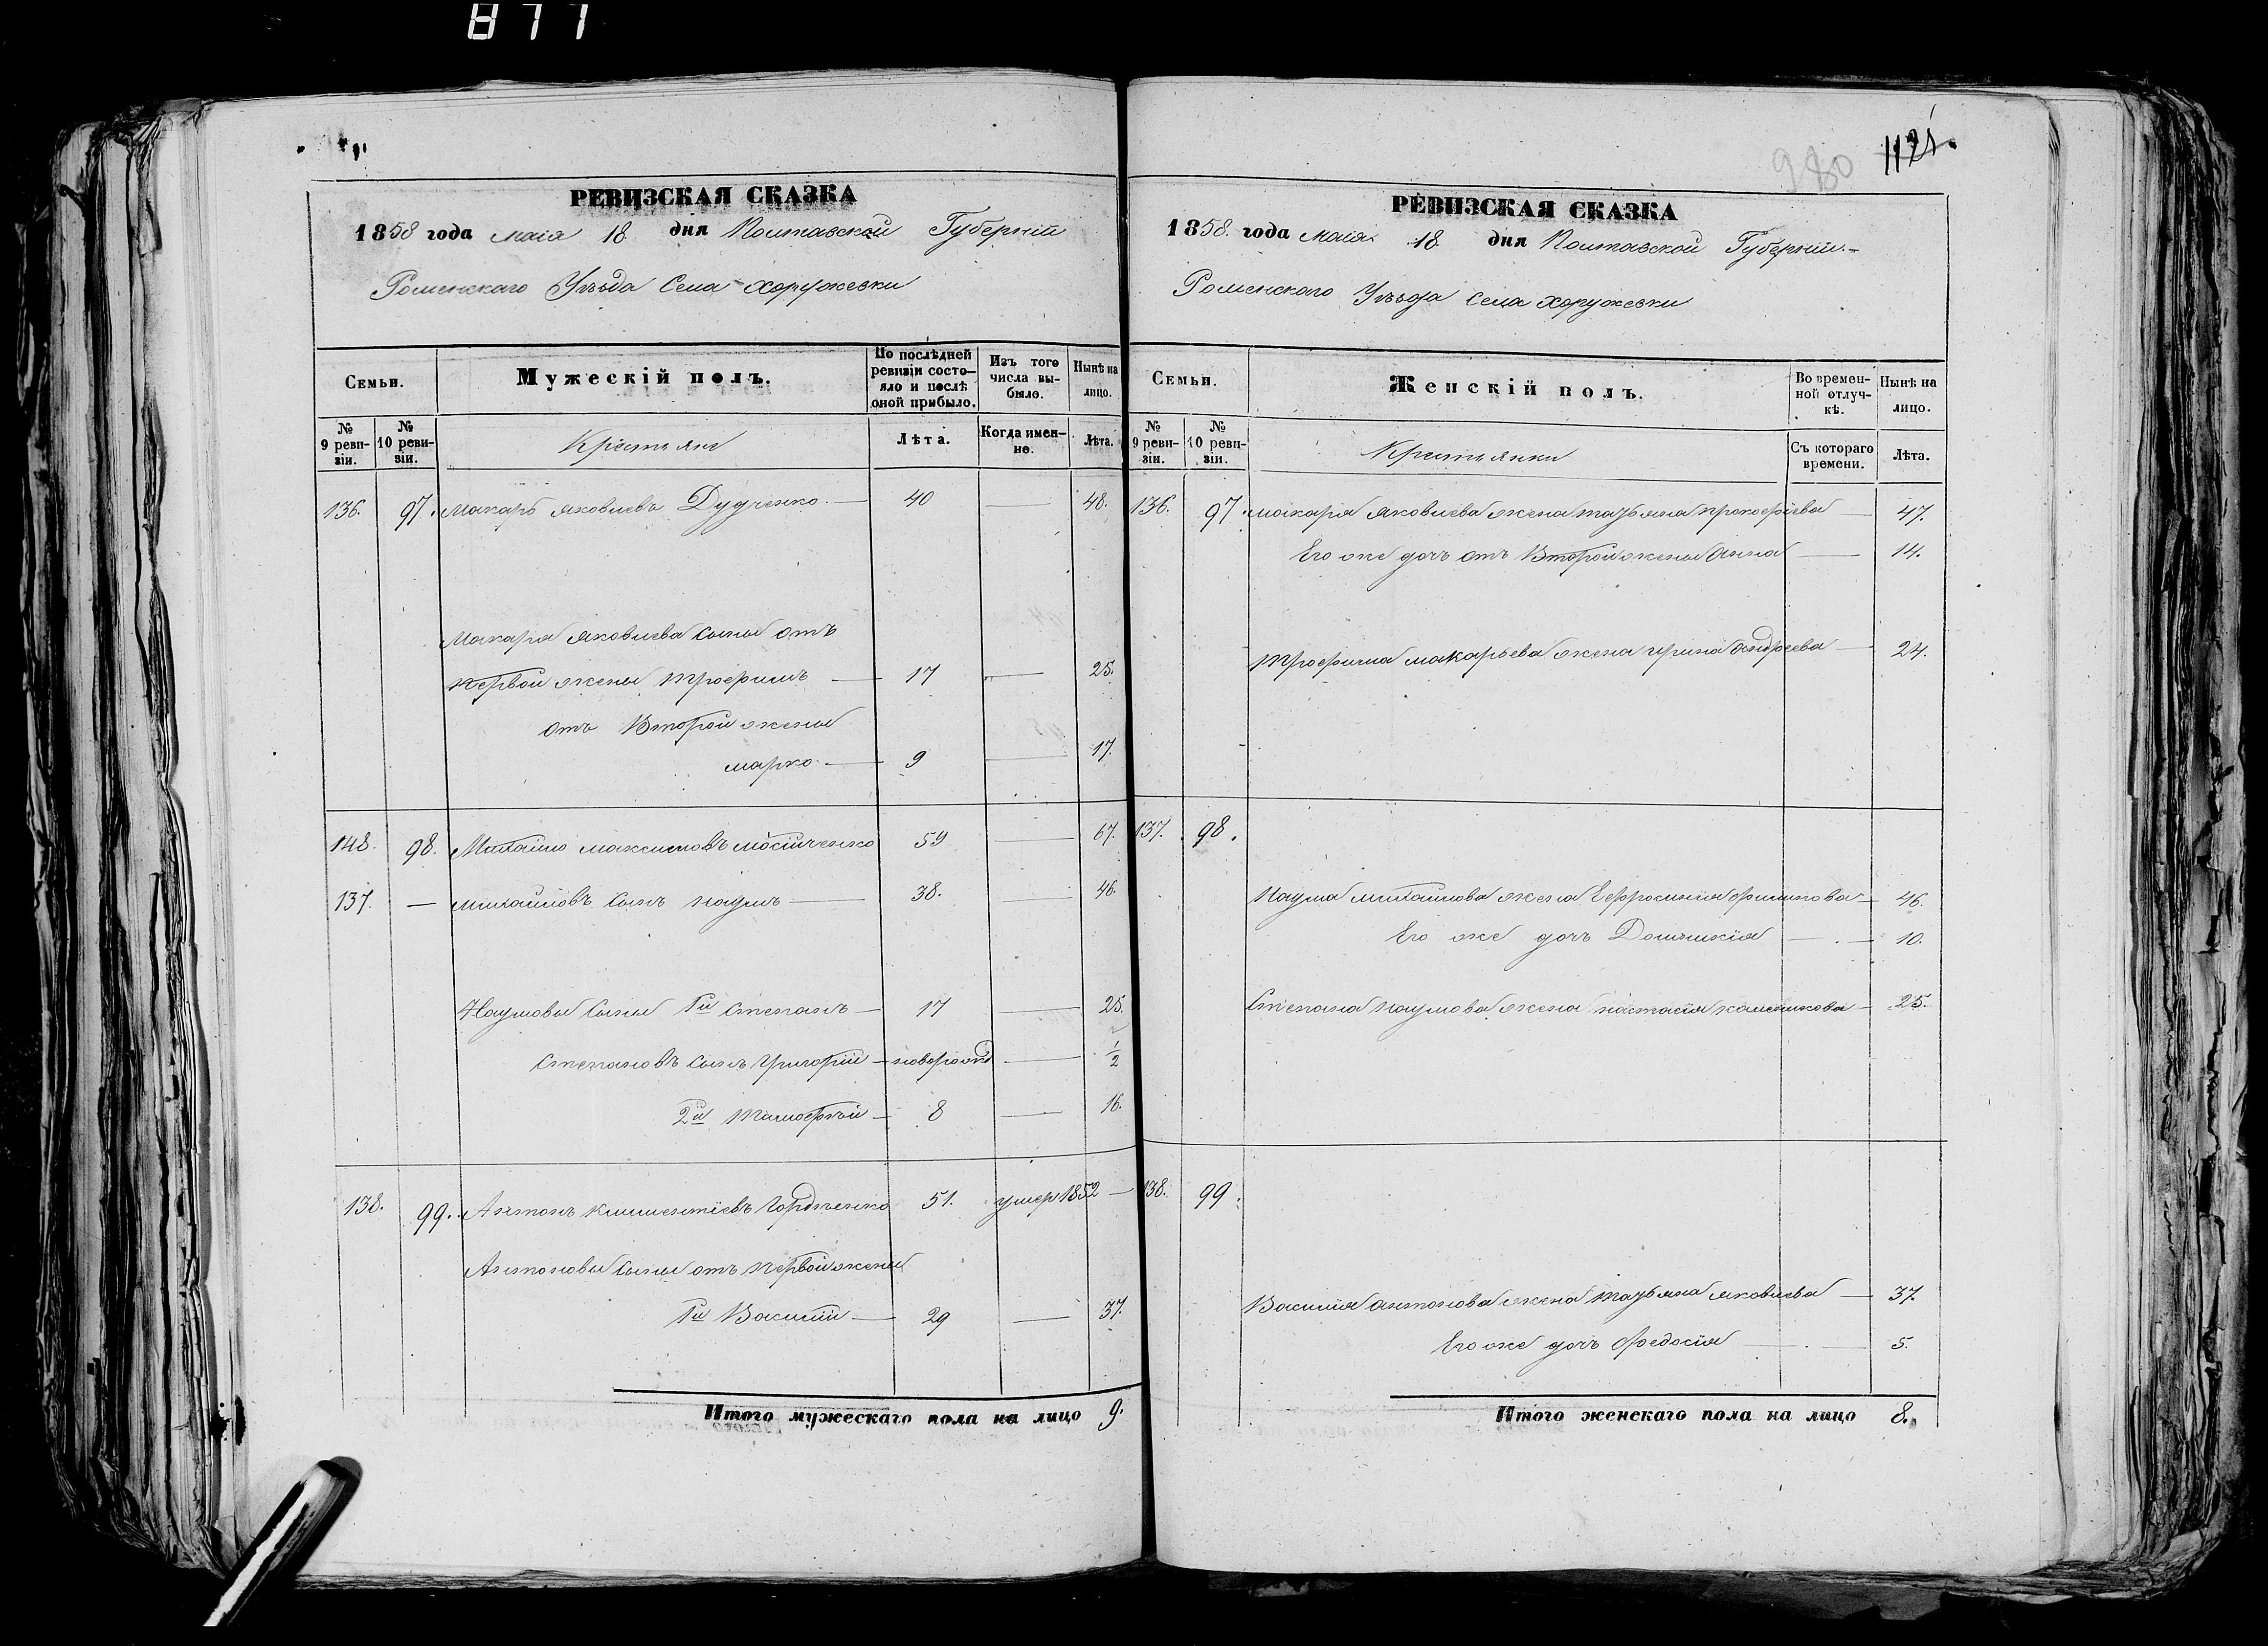 877
РЕВИЗСКАЯ СКАЗКА
1858 года маія 18 дня Полтавской Губерніи
Роменскаго Уѣзда Села Хоружевки
Семьи.
Мужескій полъ.
По послѣдней ревизіи состояло и послѣ оной прибыло.
Изъ того числа выбыло.
Нынѣ на лицо.
№ 9 ревизіи.
№ 10 ревизіи.
Крестьяне
Лѣта.
Когда именно.
Лѣта.
136. 97. Макаръ Яковлевъ Дудченко 40 — 48.
Макара Яковлева сыны отъ
первой жены Трофимъ — 17 — 25.
отъ Второй жены
Марко — 9 — 17.
148. 98. Михайло Максимовъ 59 — 67.
137. — Михайловъ сынъ Наумъ — 38. — 46.
Наумовы сыны 1й Степанъ — 17 — 25.
Степановъ сынъ Григорій — новорожд — 1/2
2й Тимофѣй — 8 — 16.
138. 99. Антонъ Климентіевъ Гордіенко 51. умер 1852 —
Антоновы сыны отъ первой жены
1й Василій — 29 — 37.
Итого мужескаго пола на лицо 9.
980 1121.
РЕВИЗСКАЯ СКАЗКА
1858. года маія 18 дня Полтавской Губерніи.
Роменскаго Уѣзда Села Хоружевки
Семьи.
Женскій полъ.
Во временной отлучкѣ.
Нынѣ на лицо.
№ 9 ревизіи.
№ 10 ревизіи.
Крестьянки
Съ котораго времени.
Лѣта.
136. 97. Макара Яковлева жена Татьяна Прокофіева — 47.
Его же дочь отъ Второй жены Анна — 14.
Трофима Макарьева жена Ирина Андреева — 24.
137. 98.
Наума Михайлова жена Ефросинія Филипова — 46.
Его же дочь Домникія — 10.
Степана Наумова жена Настасія — 25.
138. 99.
Василія Антонова жена Татьяна Яковлева — 37.
Его же дочь Федосія — 5.
Итого женскаго пола на лицо 8.